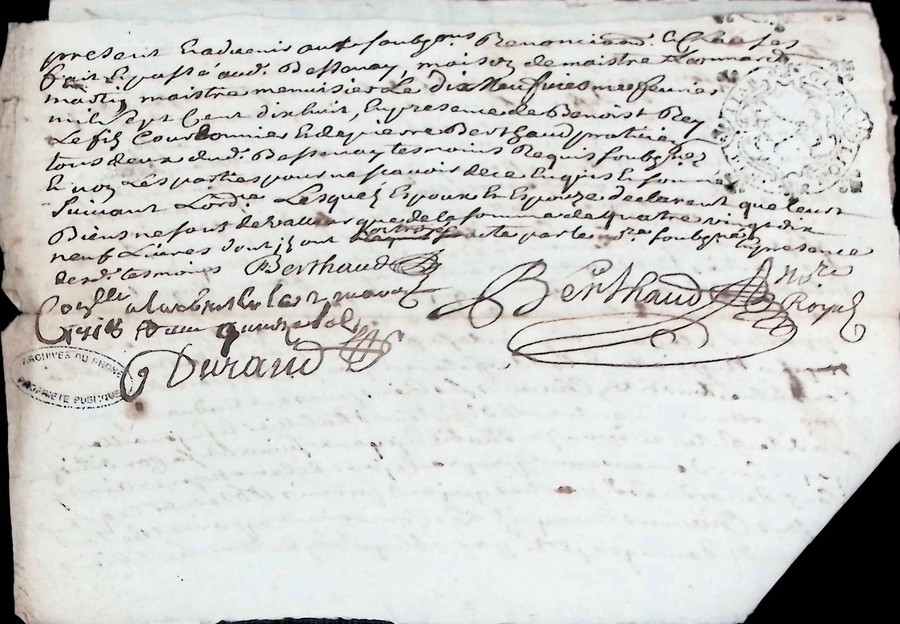 present et advenir aux soubz.nes Renonciand. & Clauses
fait & passé aud. Bessenay, maison de maistre
martin maistre menuisier Le dix neufviesme feurier
mil sept Cent dix huit, En presence de Benoist Rey
Le fils Courdonnier & de pierre Berthaud praticien
tous deux dud. Bessenay tesmoins Requis soubz.nes
& non Les parties pour ne scavoir de ce Enquis & somme
suivant Lord.ce Lesquels Espoux & Espouze declarent que leurs
Biens ne sont de valleur que de la somme de quatre vingt dix
neuf Livres dont ils ont acte par le no.re soubz.ne En presence
desd. tesmoins Berthaud
Berthaud No.re Royal
Con.lle
quinze sols
Durand
ARCHIVES DU RHONE
PROPRIETE PUBLIQUE